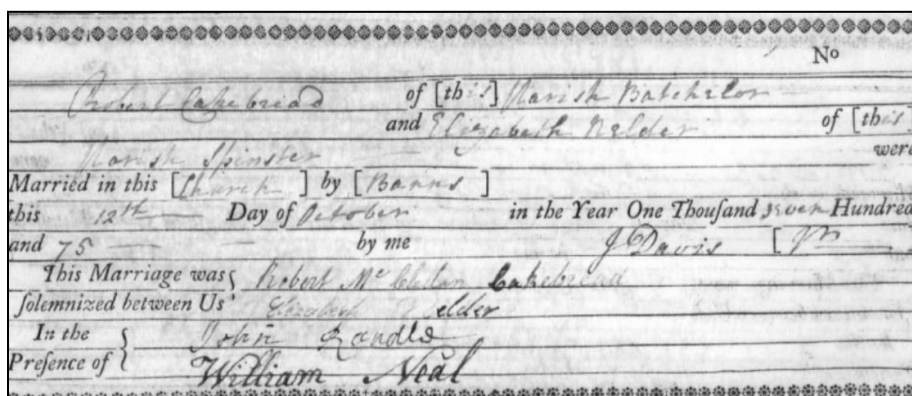 No
Robert Cakebread of [this] Parish Batchelor
and Elizabeth Nelder of [this]
Parish Spinster were
Married in this [Church] by [Banns]
this 12th Day of October in the Year One Thouſand seven Hundred
and 75 by me J Davis
This Marriage was Robert Mc Cakebread
ſolemnized between Us Elizabeth Nelder
In the John Randle
Preſence of William Neal